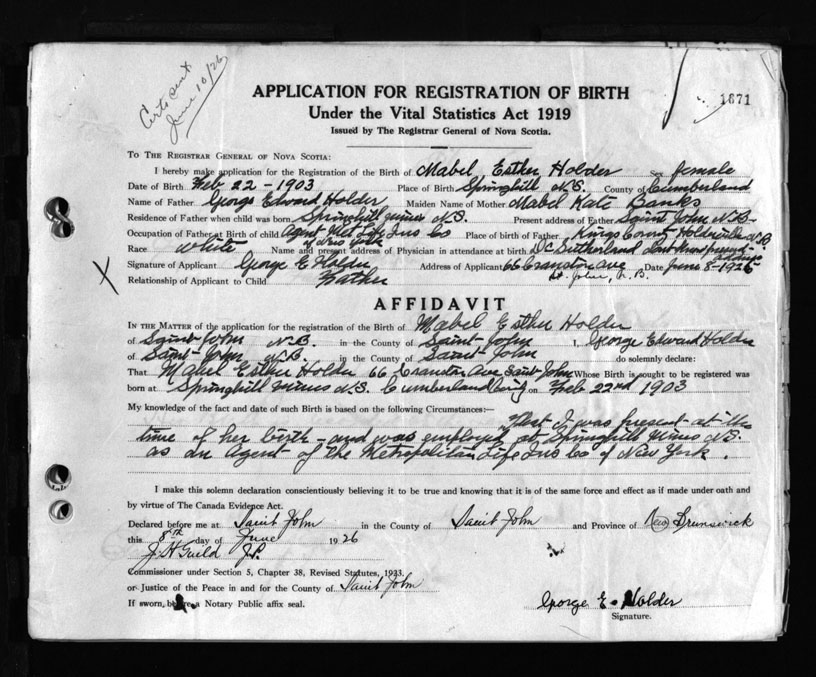 Certs sent
June 10/26
1671
APPLICATION FOR REGISTRATION OF BIRTH
Under the Vital Statistics Act 1919
Issued by The Registrar General of Nova Scotia.
To The Registrar General of Nova Scotia:
I hereby make application for the Registration of the Birth of Mabel Esther Holder Sex female
Date of Birth Feb 22 - 1903 Place of Birth Springhill N.S. County of Cumberland
Name of Father George Edward Holder Maiden Name of Mother Mabel Kate Banks
Residence of Father when child was born Springhill mines N.S. Present address of Father Saint John N.B-
Occupation of Father at Birth of child Agent Met Life Ins Co of New York Place of birth of Father Kings County Holderville N.B.
Race White Name and present address of Physician in attendance at birth Dr Sutherland dont know present address
Signature of Applicant George E Holder Address of Applicant 66 Cranston Ave St. John, N.B. Date June 8-1926
Relationship of Applicant to Child Father
AFFIDAVIT
In the Matter of the application for the registration of the Birth of Mabel Esther Holder
of Saint-John N.B. in the County of Saint-John I, George Edward Holder
of Saint-John N.B. in the County of Saint John do solemnly declare:
That Mabel Esther Holder 66 Cranston Ave Saint John Whose Birth is sought to be registered was
born at Springhill mines N.S. Cumberland County on Feb 22nd 1903
My knowledge of the fact and date of such Birth is based on the following Circumstances:—
That I was present at the
time of her birth - and was employed at Springhill mines N.S.
as an Agent of the Metropolitan Life Ins Co of New York.
I make this solemn declaration conscientiously believing it to be true and knowing that it is of the same force and effect as if made under oath and
by virtue of The Canada Evidence Act.
Declared before me at Saint John in the County of Saint John and Province of New Brunswick
this 8th day of June 1926
J. H. Guild J.P.
Commissioner under Section 5, Chapter 38, Revised Statutes, 1923.
or Justice of the Peace in and for the County of Saint John
If sworn, before a Notary Public affix seal.
George E. Holder
Signature.